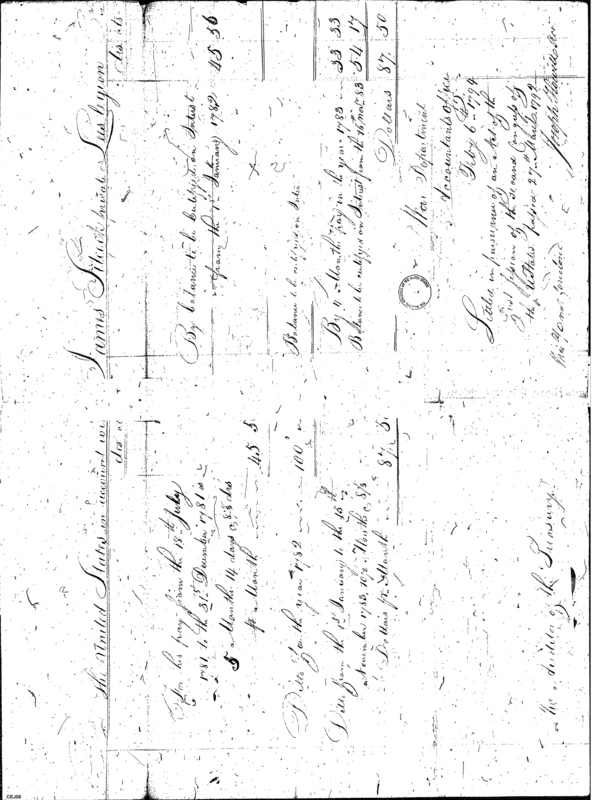 The United States in account wi
James Pitcock private Lees Legion
For his pay from the 18th July
1781 to the 31st December 1781 is
5 Months 14 days @ 8⅓ drs
pr Month 45 5
Ditto for the year 1782 100
Ditto from the 1st January to the 15th
November 1783, 10½ Months @ 8⅓
Dollars pr Month 87 5
The Auditor of the Treasury
By balance to be entered on Interest
from the 1st January 1782 45 56
Balance to be entered on Inte
By 4 Months pay in the year 1783 33 33
Balance to be entered on Interest from the 16 Novr 83 54 17
Dollars 87 50
War Department
Accountants office
Feby 6th 1794
Settled in pursuance of an Act of the
first session of the second Congress of
the U States passed 27th March 1792
Joseph Howell
CEJ06